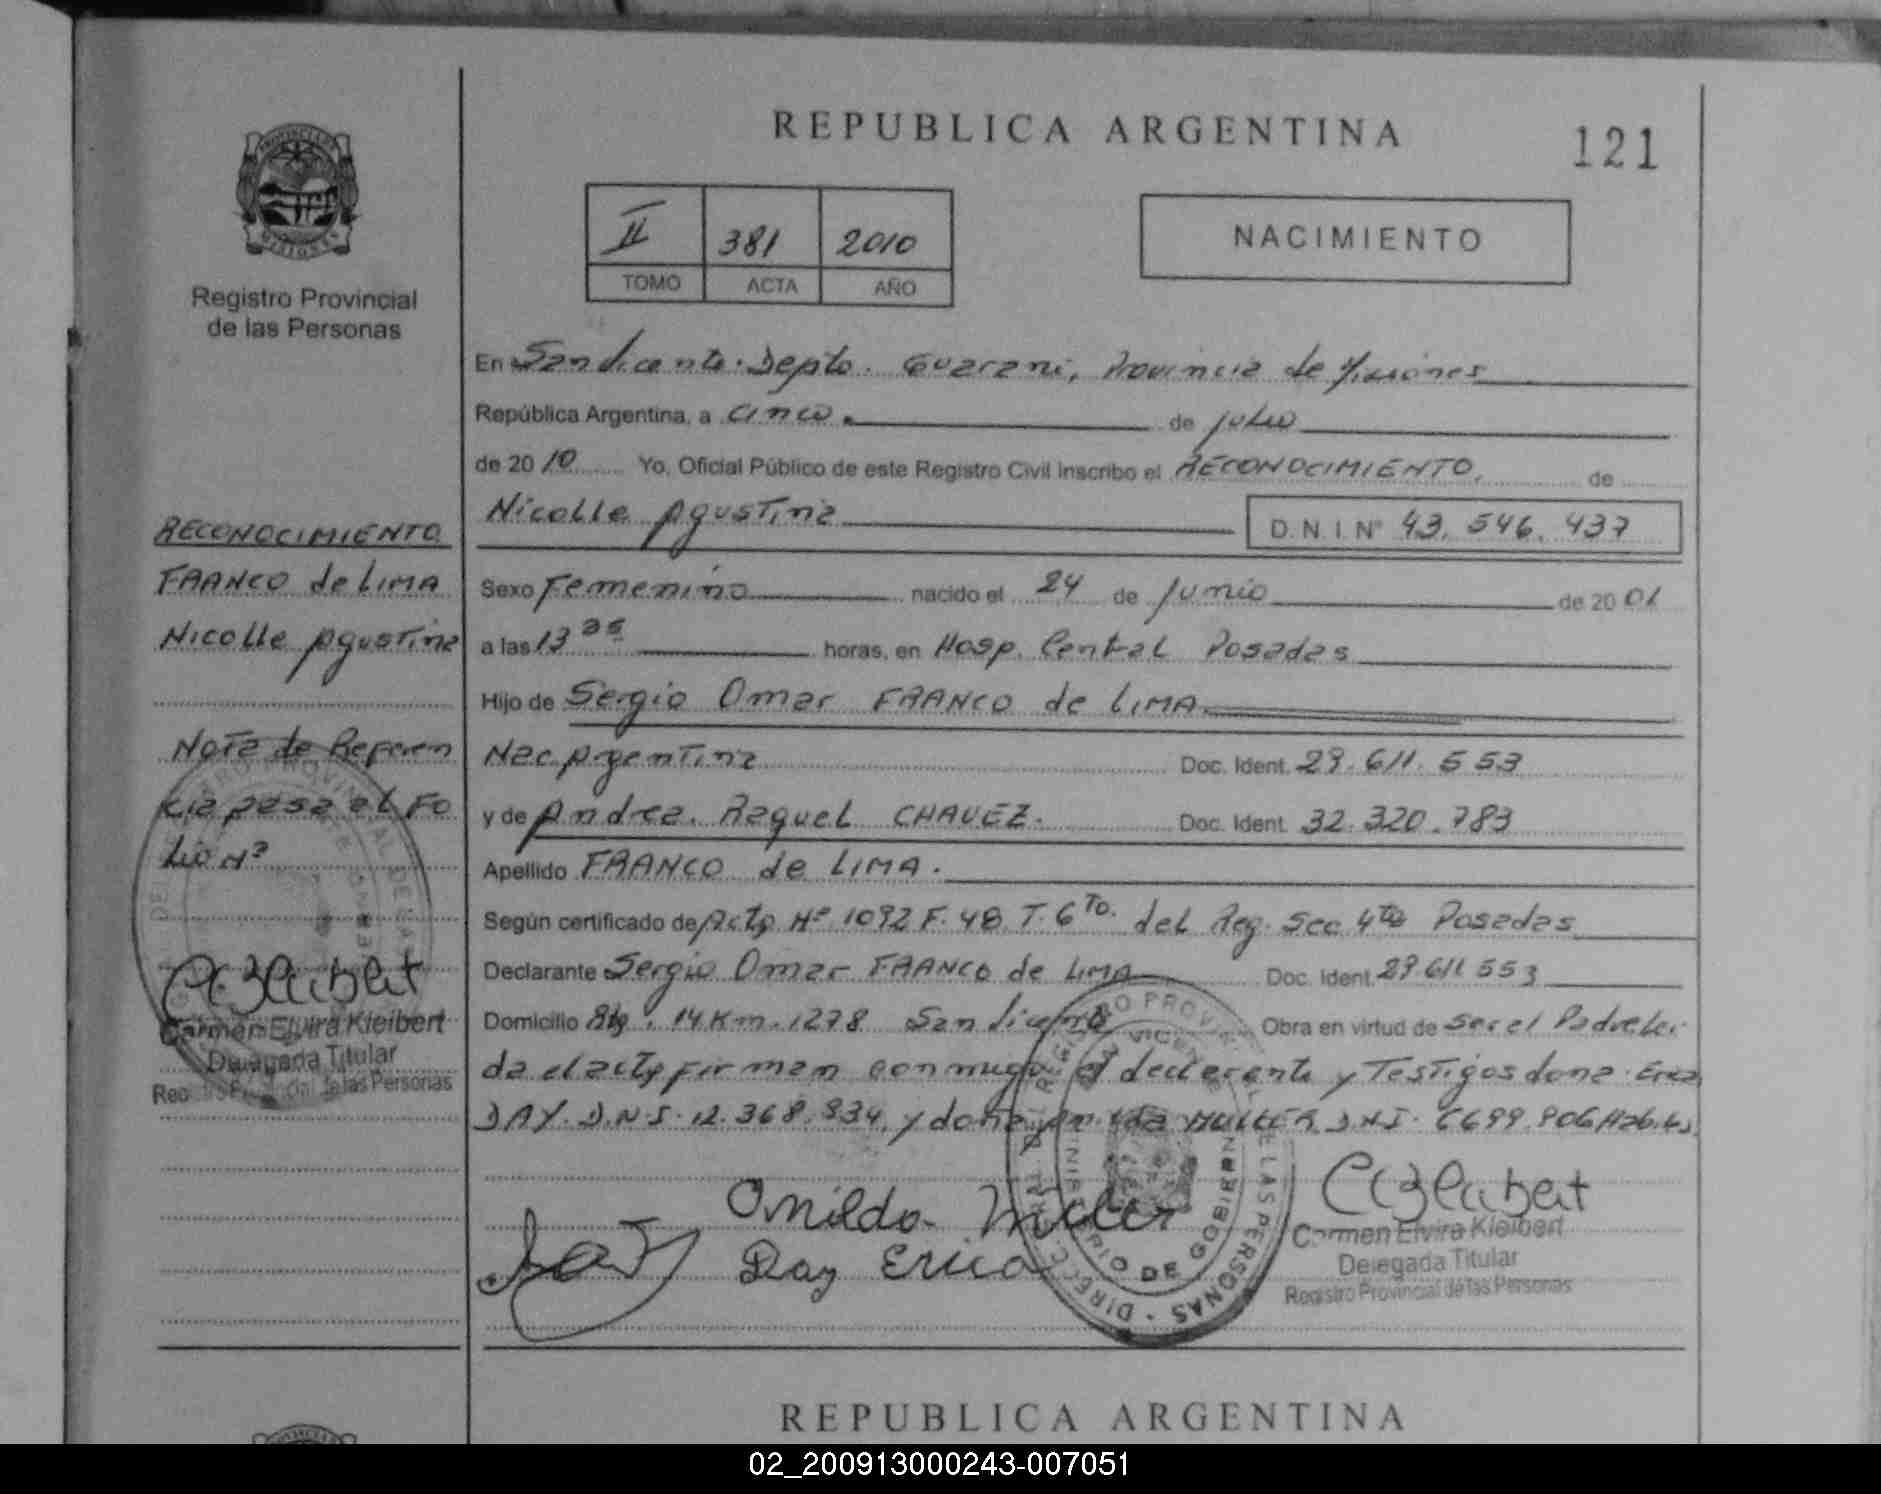 REPUBLICA ARGENTINA
121
PROVINCIA DE
MISIONES
Registro Provincial
de las Personas
II 381 2010
TOMO ACTA AÑO
NACIMIENTO
En San Vicente. Depto. Guarani, Provincia de Misiones
República Argentina, a cinco. de julio
de 20 10 Yo, Oficial Público de este Registro Civil Inscribo el RECONOCIMIENTO. de
Nicolle Agustina D.N.I. Nº 43.546.437
Sexo Femenino nacido el 24 de Junio de 20 01
a las 13 35 horas, en Hosp. Central Posadas
Hijo de Sergio Omar FRANCO de LIMA
Nac. Argentina Doc. Ident. 29.611.553
y de Andrea. Raquel CHAVEZ. Doc. Ident. 32.320.783
Apellido FRANCO de LIMA.
Según certificado de Acta Nº 1092 F. 48 T. 6to. del Reg. Sec 4ta Posadas
Declarante Sergio Omar FRANCO de LIMA Doc. Ident. 29.611.553
Domicilio Rta. 14 Km. 1278 San Vicente Obra en virtud de ser el Padre Lei
da el acta firman conmigo el declarante y Testigos dona Erica
DAY. D.N.I. 12.368.934, y doña MULLER D.N.I. 6699.906 Hábiles
RECONOCIMIENTO
FRANCO de LIMA
Nicolle Agustina
Nota de Referen
cia pasa al Fo
lio Nº
Carmen Elvira Kleibert
Delegada Titular
Registro Provincial de las Personas
Onilda Muler
Day Erica
REGISTRO PROVINCIAL DE LAS PERSONAS
SAN VICENTE
MINISTERIO DE GOBIERNO
Carmen Elvira Kleibert
Delegada Titular
Registro Provincial de las Personas
REPUBLICA ARGENTINA
02_200913000243-007051